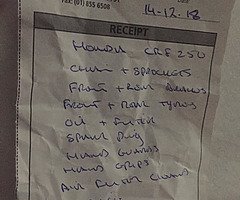 Fax: (01) 855 6508
14-12-18
RECEIPT
HONDA CRF 250
CHAIN + SPROCKETS
FRONT + REAR BRAKES
FRONT + REAR TYRES
OIL + FILTER
SPARK PLUG
HAND GUARDS
HAND GRIPS
AIR FILTER CLEANED